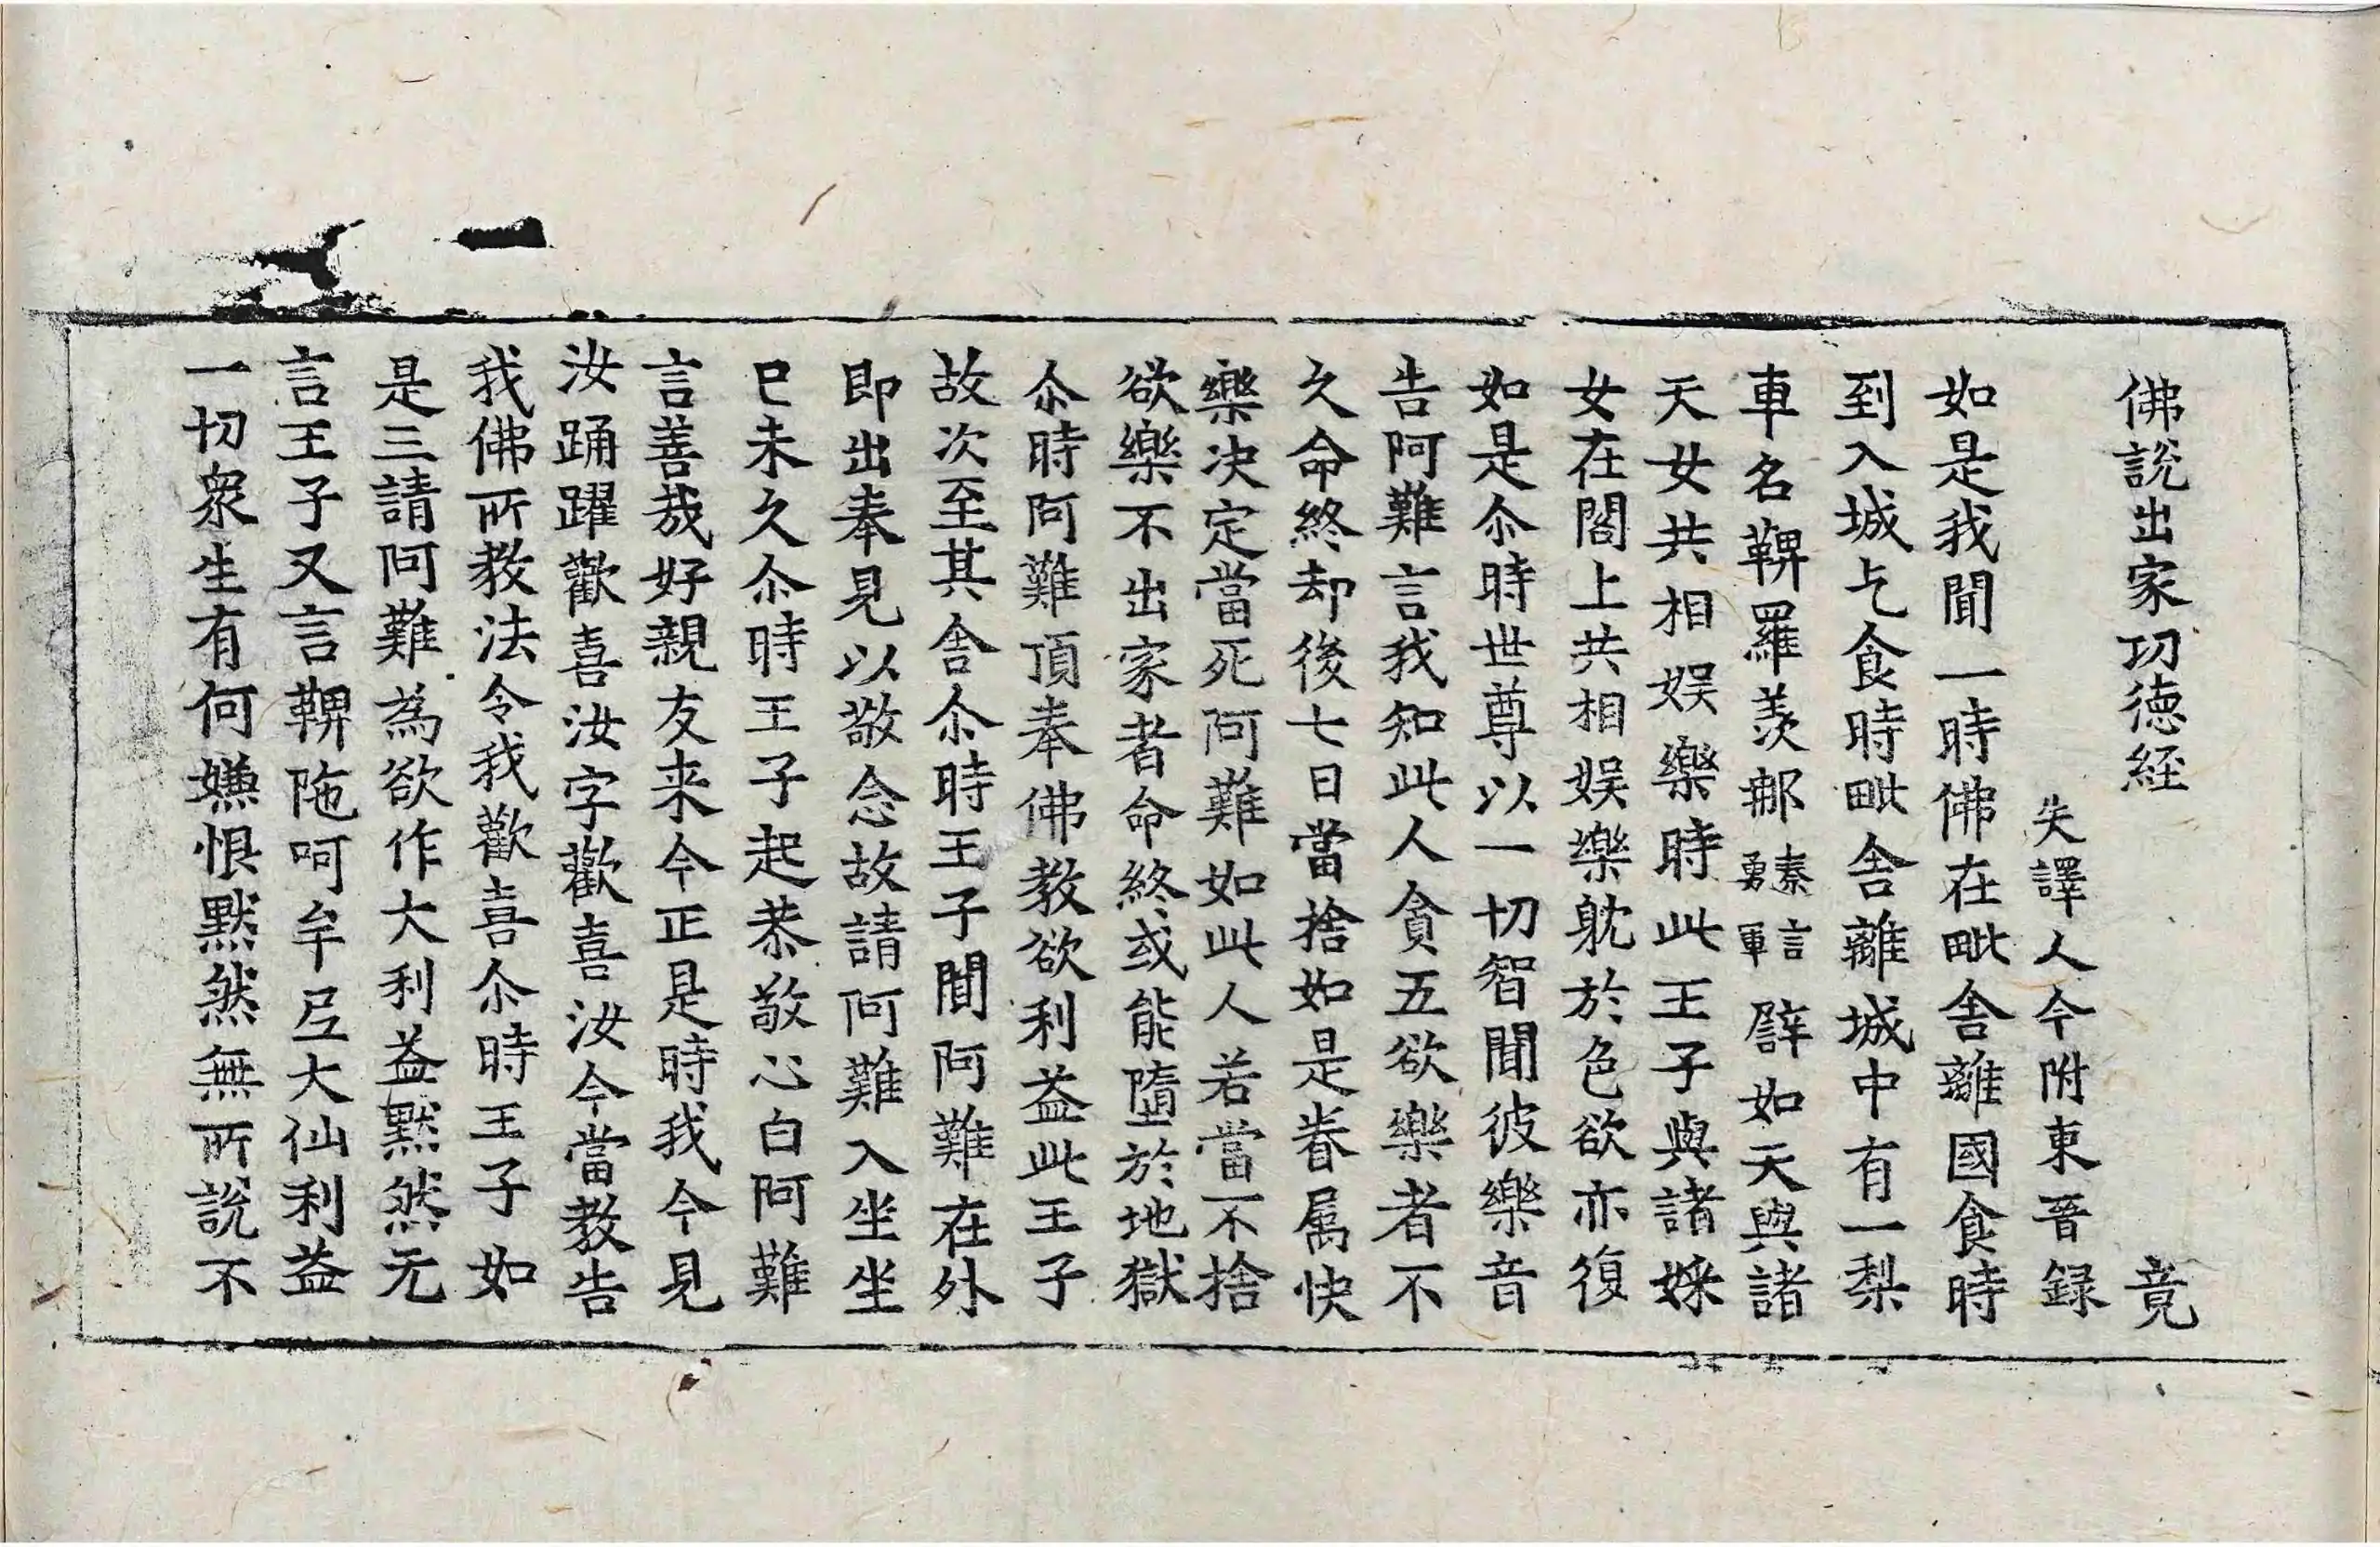 佛說出家功德経 竟
失譯人今附東晉録
如是我聞一時佛在毗舍離國食時
到入城乞食時毗舍離城中有一梨
車名鞞羅羨那秦言勇軍譬如天與諸
天女共相娱樂時此王子與諸婇
女在閣上共相娱樂躭於色欲亦復
如是尒時世尊以一切智聞彼樂音
告阿難言我知此人貪五欲樂者不
久命終却後七日當捨如是眷属快
樂決定當死阿難如此人若當不捨
欲樂不出家者命終或能墮於地獄
尒時阿難頂奉佛教欲利益此王子
故次至其舍尒時王子聞阿難在外
即出奉見以敬念故請阿難入坐坐
已未久尒時王子起恭敬心白阿難
言善哉好親友来今正是時我今見
汝踊躍歡喜汝字歡喜汝今當教告
我佛所教法令我歡喜尒時王子如
是三請阿難為欲作大利益黙然无
言王子又言鞞陁呵牟尼大仙利益
一切衆生有何嫌恨黙然無所說不